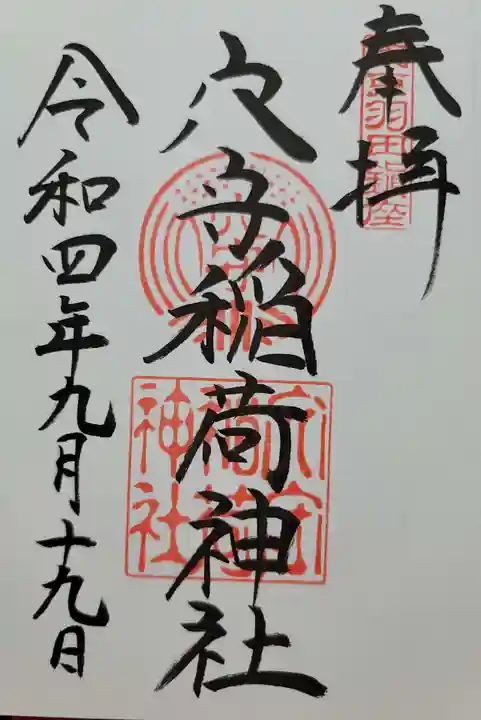 奉拝
東京羽田鎮座
穴守稲荷神社
穴守稲荷神社
令和四年九月十九日